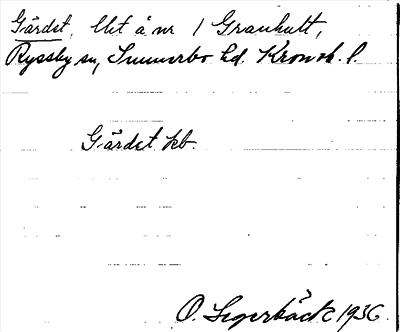 Gärdet, lht å nr 1 Granhult,
Ryssby sn, Sunnerbo hd. Kronob. l.
Gärdet kb.
O. Segerbäck 1936.